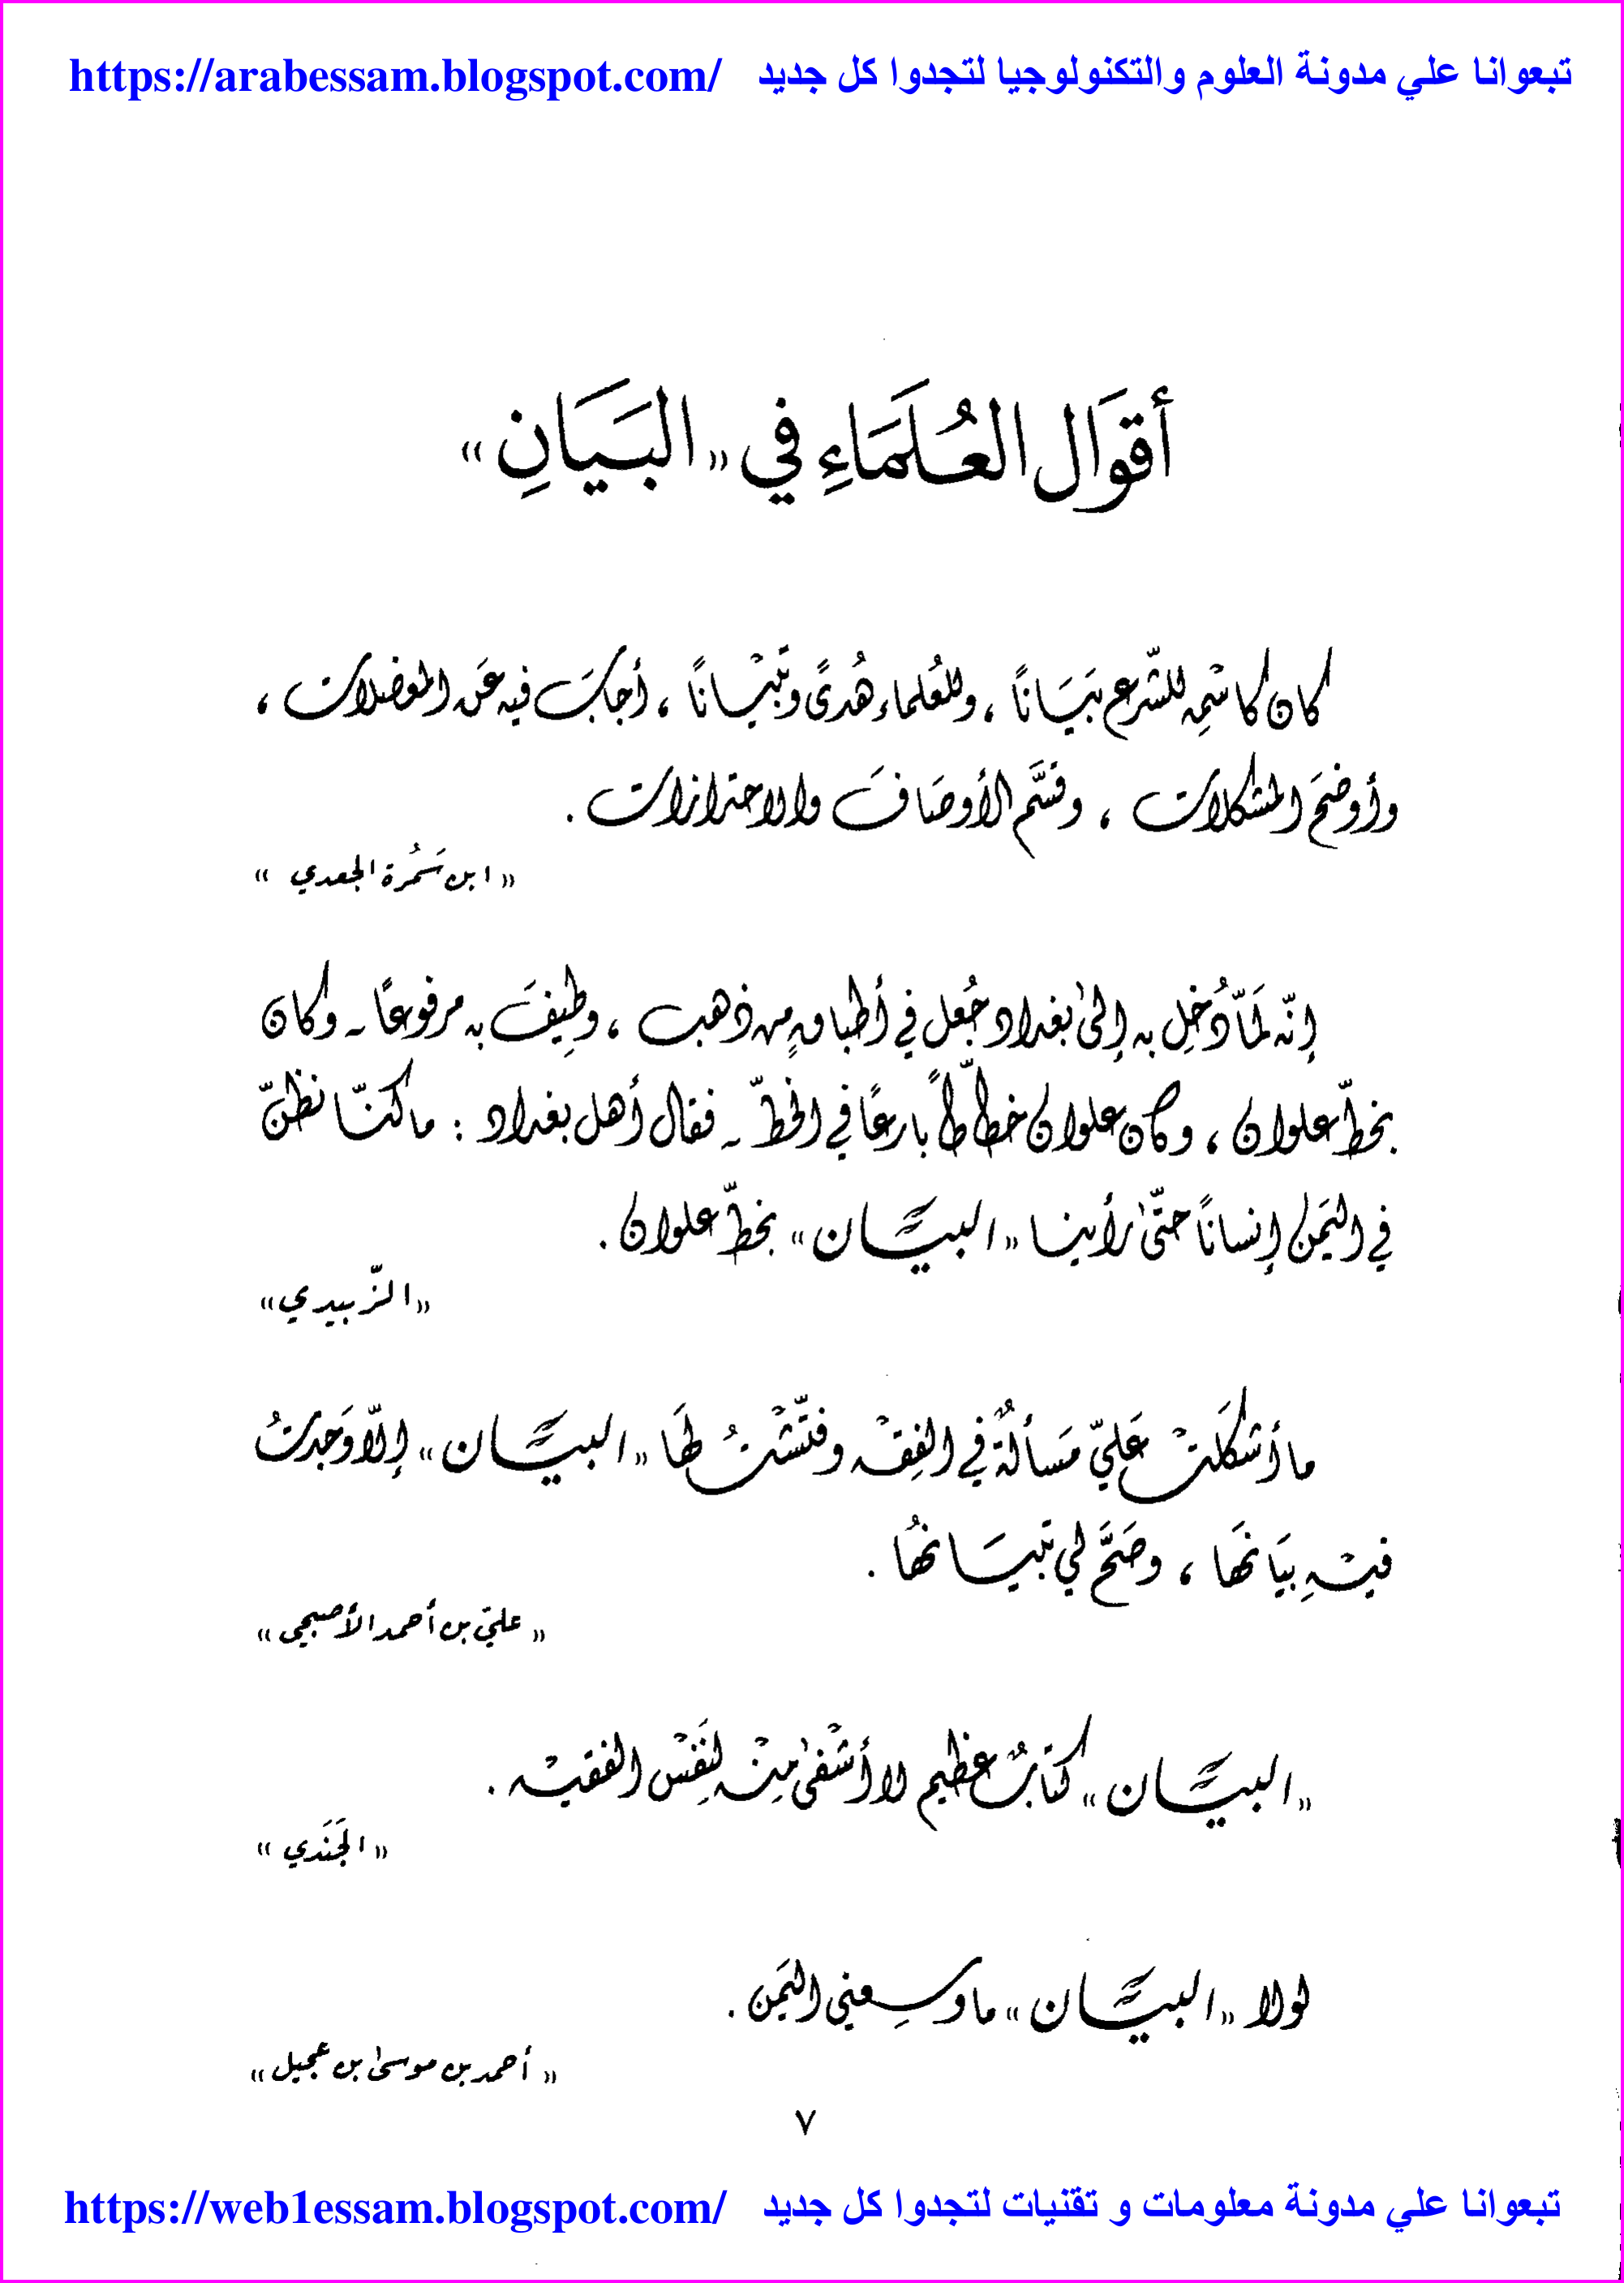 تبعوانا علي مدونة العلوم والتكنولوجيا لتجدوا كل جديد https://arabessam.blogspot.com/
أقوَال العُلَمَاءِ في «البَيَانِ»
كان كاسْمِه للشّرع بَيَانًا ، وللعُلماء هُدىً وتَبْيَانًا ، أجابَ فيه عَن المعضلات ،
وأوضحَ المشكلات ، وقسَّم الأوصَافَ والاحترازات .
«ابن سَمُرة الجعدي»
إنّه لمَّا دُخِل به إلىٰ بغداد جُعل في أطباقٍ من ذهب ، وطِيفَ به مرفوعًا - وكان
بخطّ علوان ، وكان علوان خطّاطًا بارعًا في الخطّ - فقال أهل بغداد : ما كنّا نظنّ
في اليَمن إنسانًا حتّىٰ رأينا «البيَان» بخطّ علوان .
«الزّبيدي»
ما أشكَلَتْ عَليّ مَسألةٌ في الفِقْه وفتّشْتُ لهَا «البيَان» إلّا وَجدتُ
فيْهِ بيَانهَا ، وصَحَّ لي تبيَانهُا .
«عليّ بن أحمد الأصبحي»
«البيَان» كتابٌ عظيم لا أشْفىٰ مِنْه لنَفِسْ الفقيْه .
«الجَنَدي»
لولا «البيَان» ما وسِعني اليَمن .
«أحمد بن موسىٰ بن عجيل»
٧
تبعوانا علي مدونة معلومات و تقنيات لتجدوا كل جديد https://web1essam.blogspot.com/